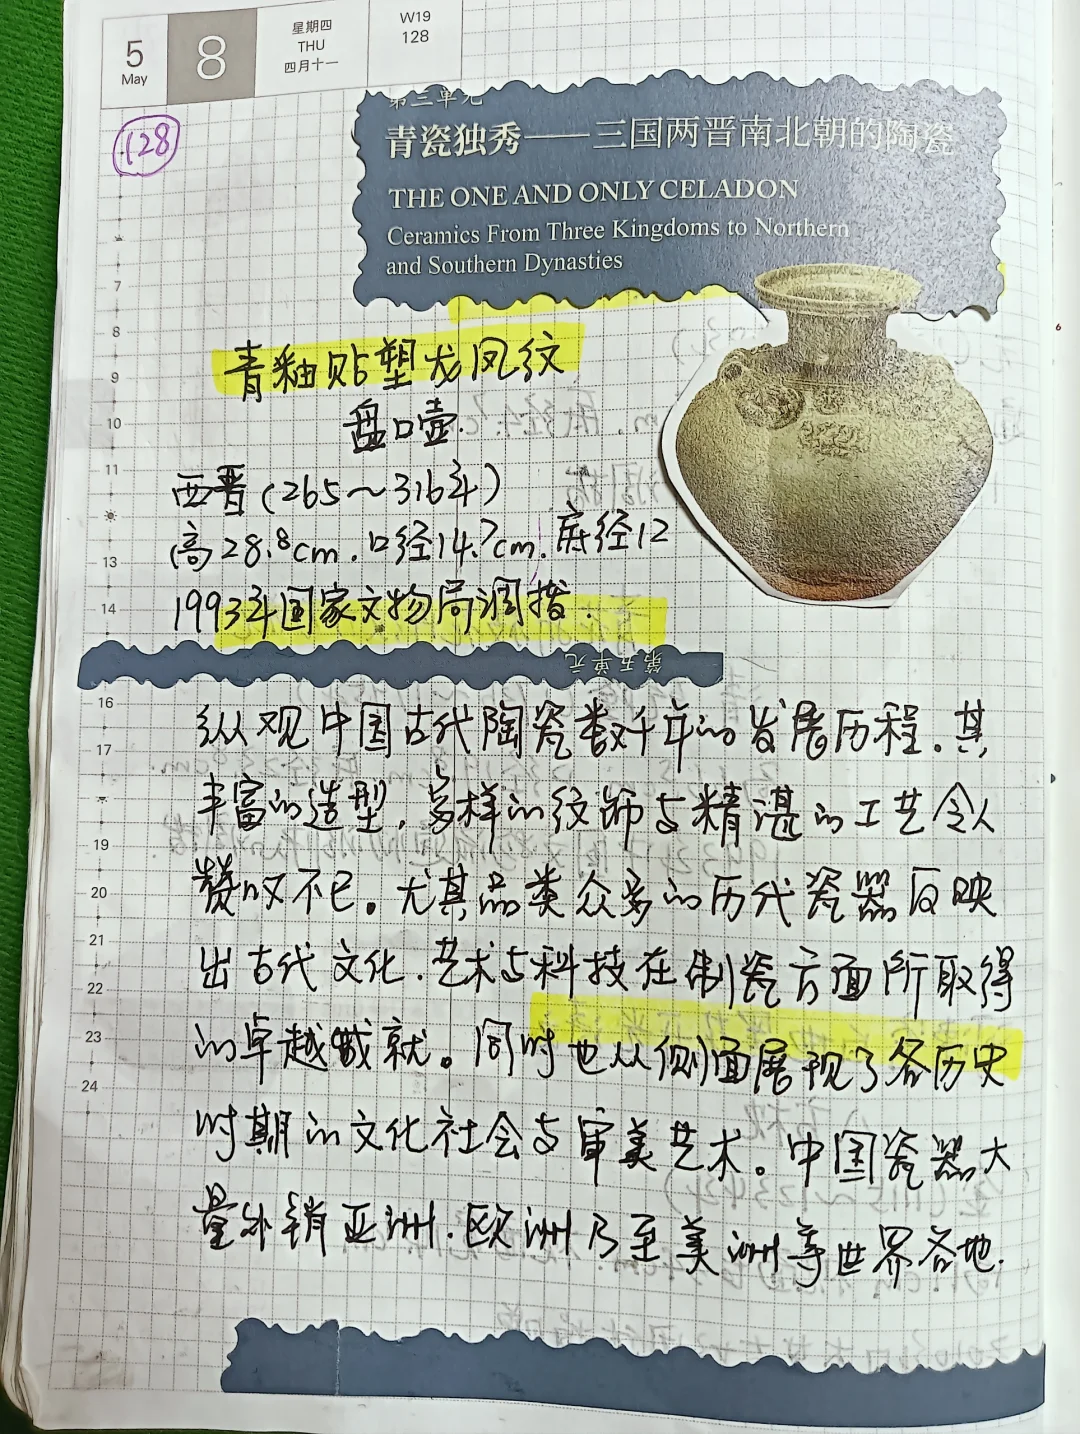 5
May
8
星期四
THU
四月十一
W19
128
128
第三单元
青瓷独秀——三国两晋南北朝的陶瓷
THE ONE AND ONLY CELADON
Ceramics From Three Kingdoms to Northern
and Southern Dynasties
7
8
青釉贴塑龙凤纹
9
盘口壶.
10
11
西晋(265～316年)
高28.8cm.口径14.7cm.底径12
13
1993年国家文物局调拨.
14
第五单元
16
纵观中国古代陶瓷数千年的发展历程.其
17
丰富的造型,多样的纹饰与精湛的工艺令人
19
赞叹不已。尤其品类众多的历代瓷器反映
20
21
出古代文化.艺术与科技在制瓷方面所取得
22
23
的卓越成就。同时也从侧面展现了各历史
24
时期的文化社会与审美艺术。中国瓷器大
量外销亚洲.欧洲乃至美洲等世界各地.